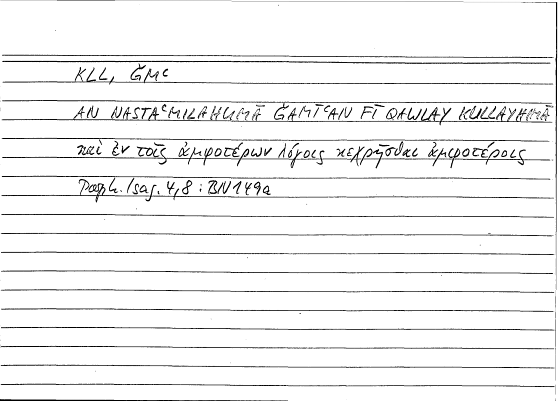 KLL, ǦMᶜ
AN NASTAᶜMILAHUMĀ ǦAMĪᶜAN FĪ QAWLAY KULLAYHIMĀ
καὶ ἐν τοῖς ἀμφοτέρων λόγοις κεχρῆσθαι ἀμφοτέροις
Porph. Isag. 4,8 : BN149a